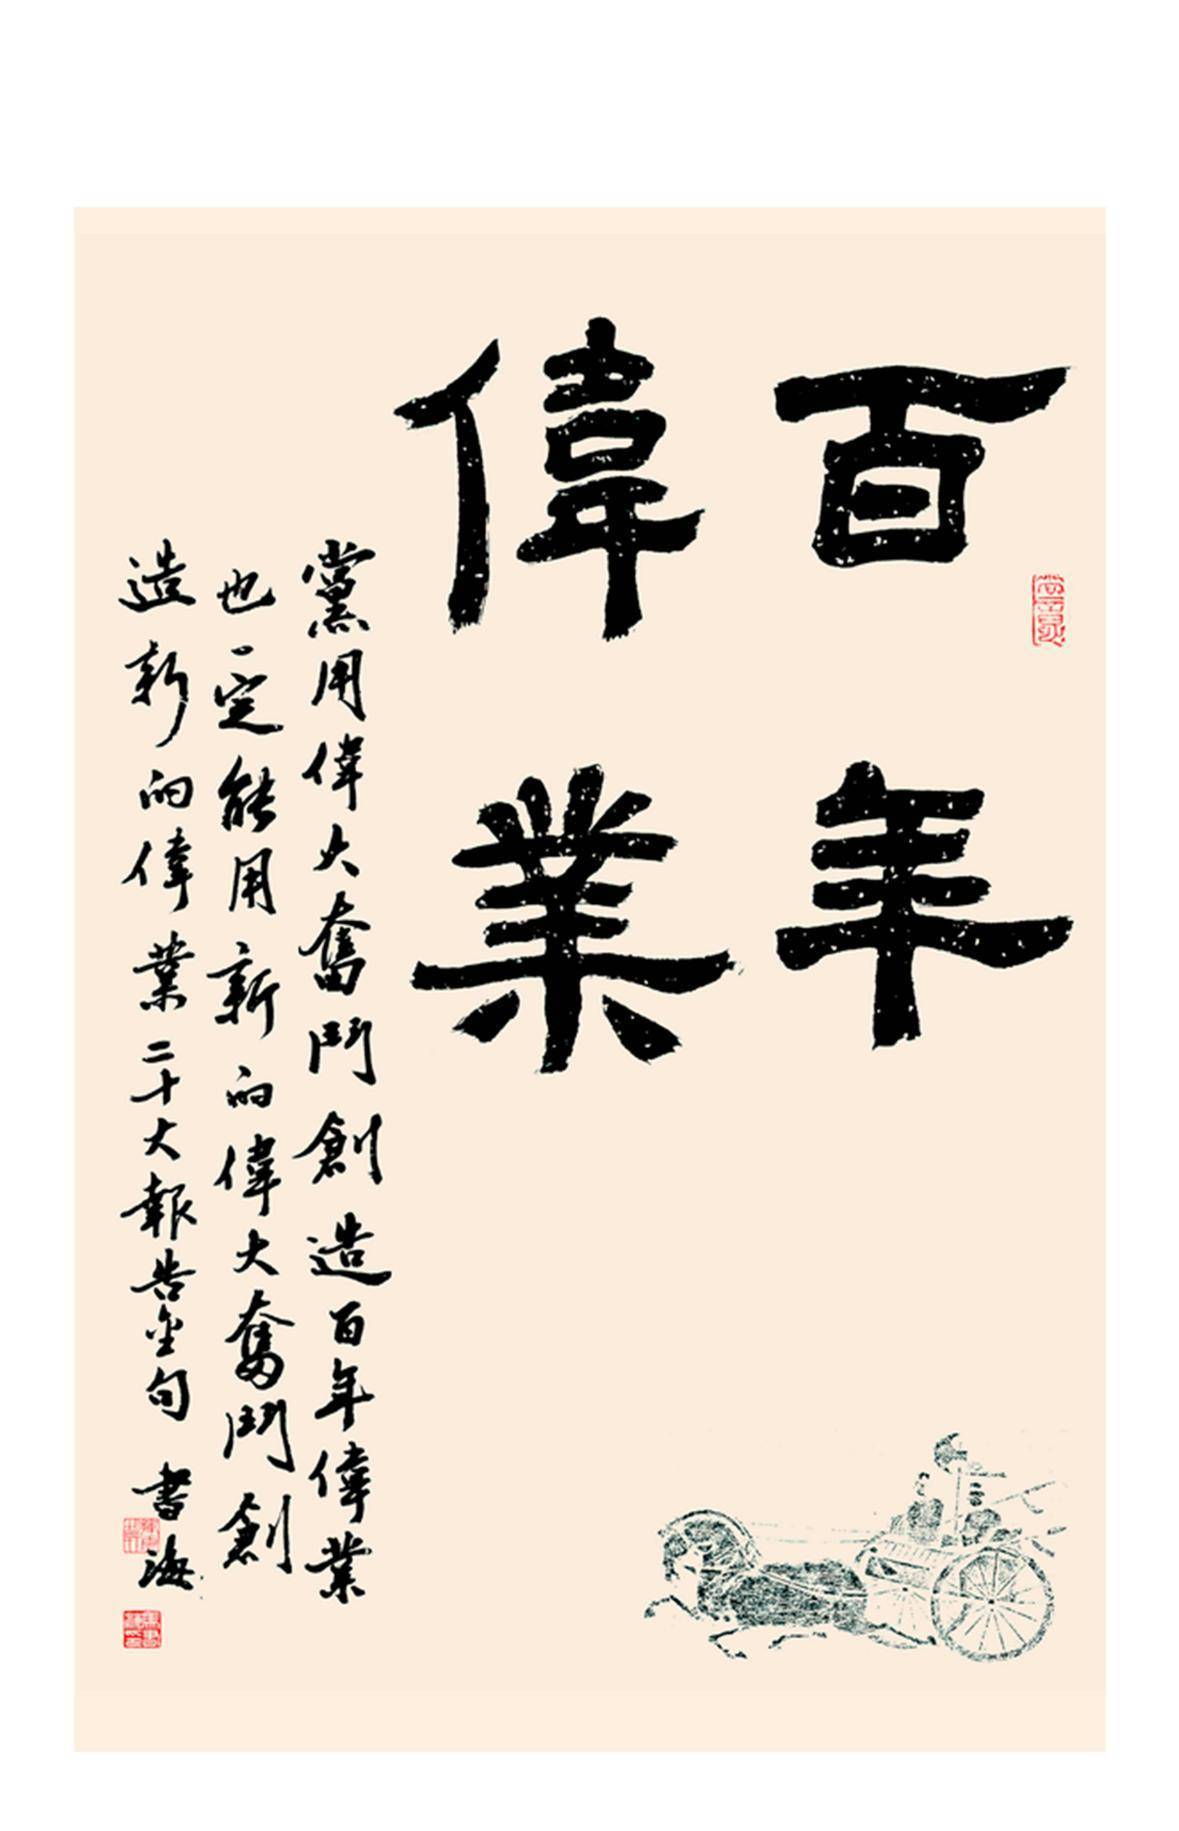 百年
偉業
黨用偉大奮鬥創造百年偉業
也一定能用新的偉大奮鬥創
造新的偉業二十大報告金句 書海